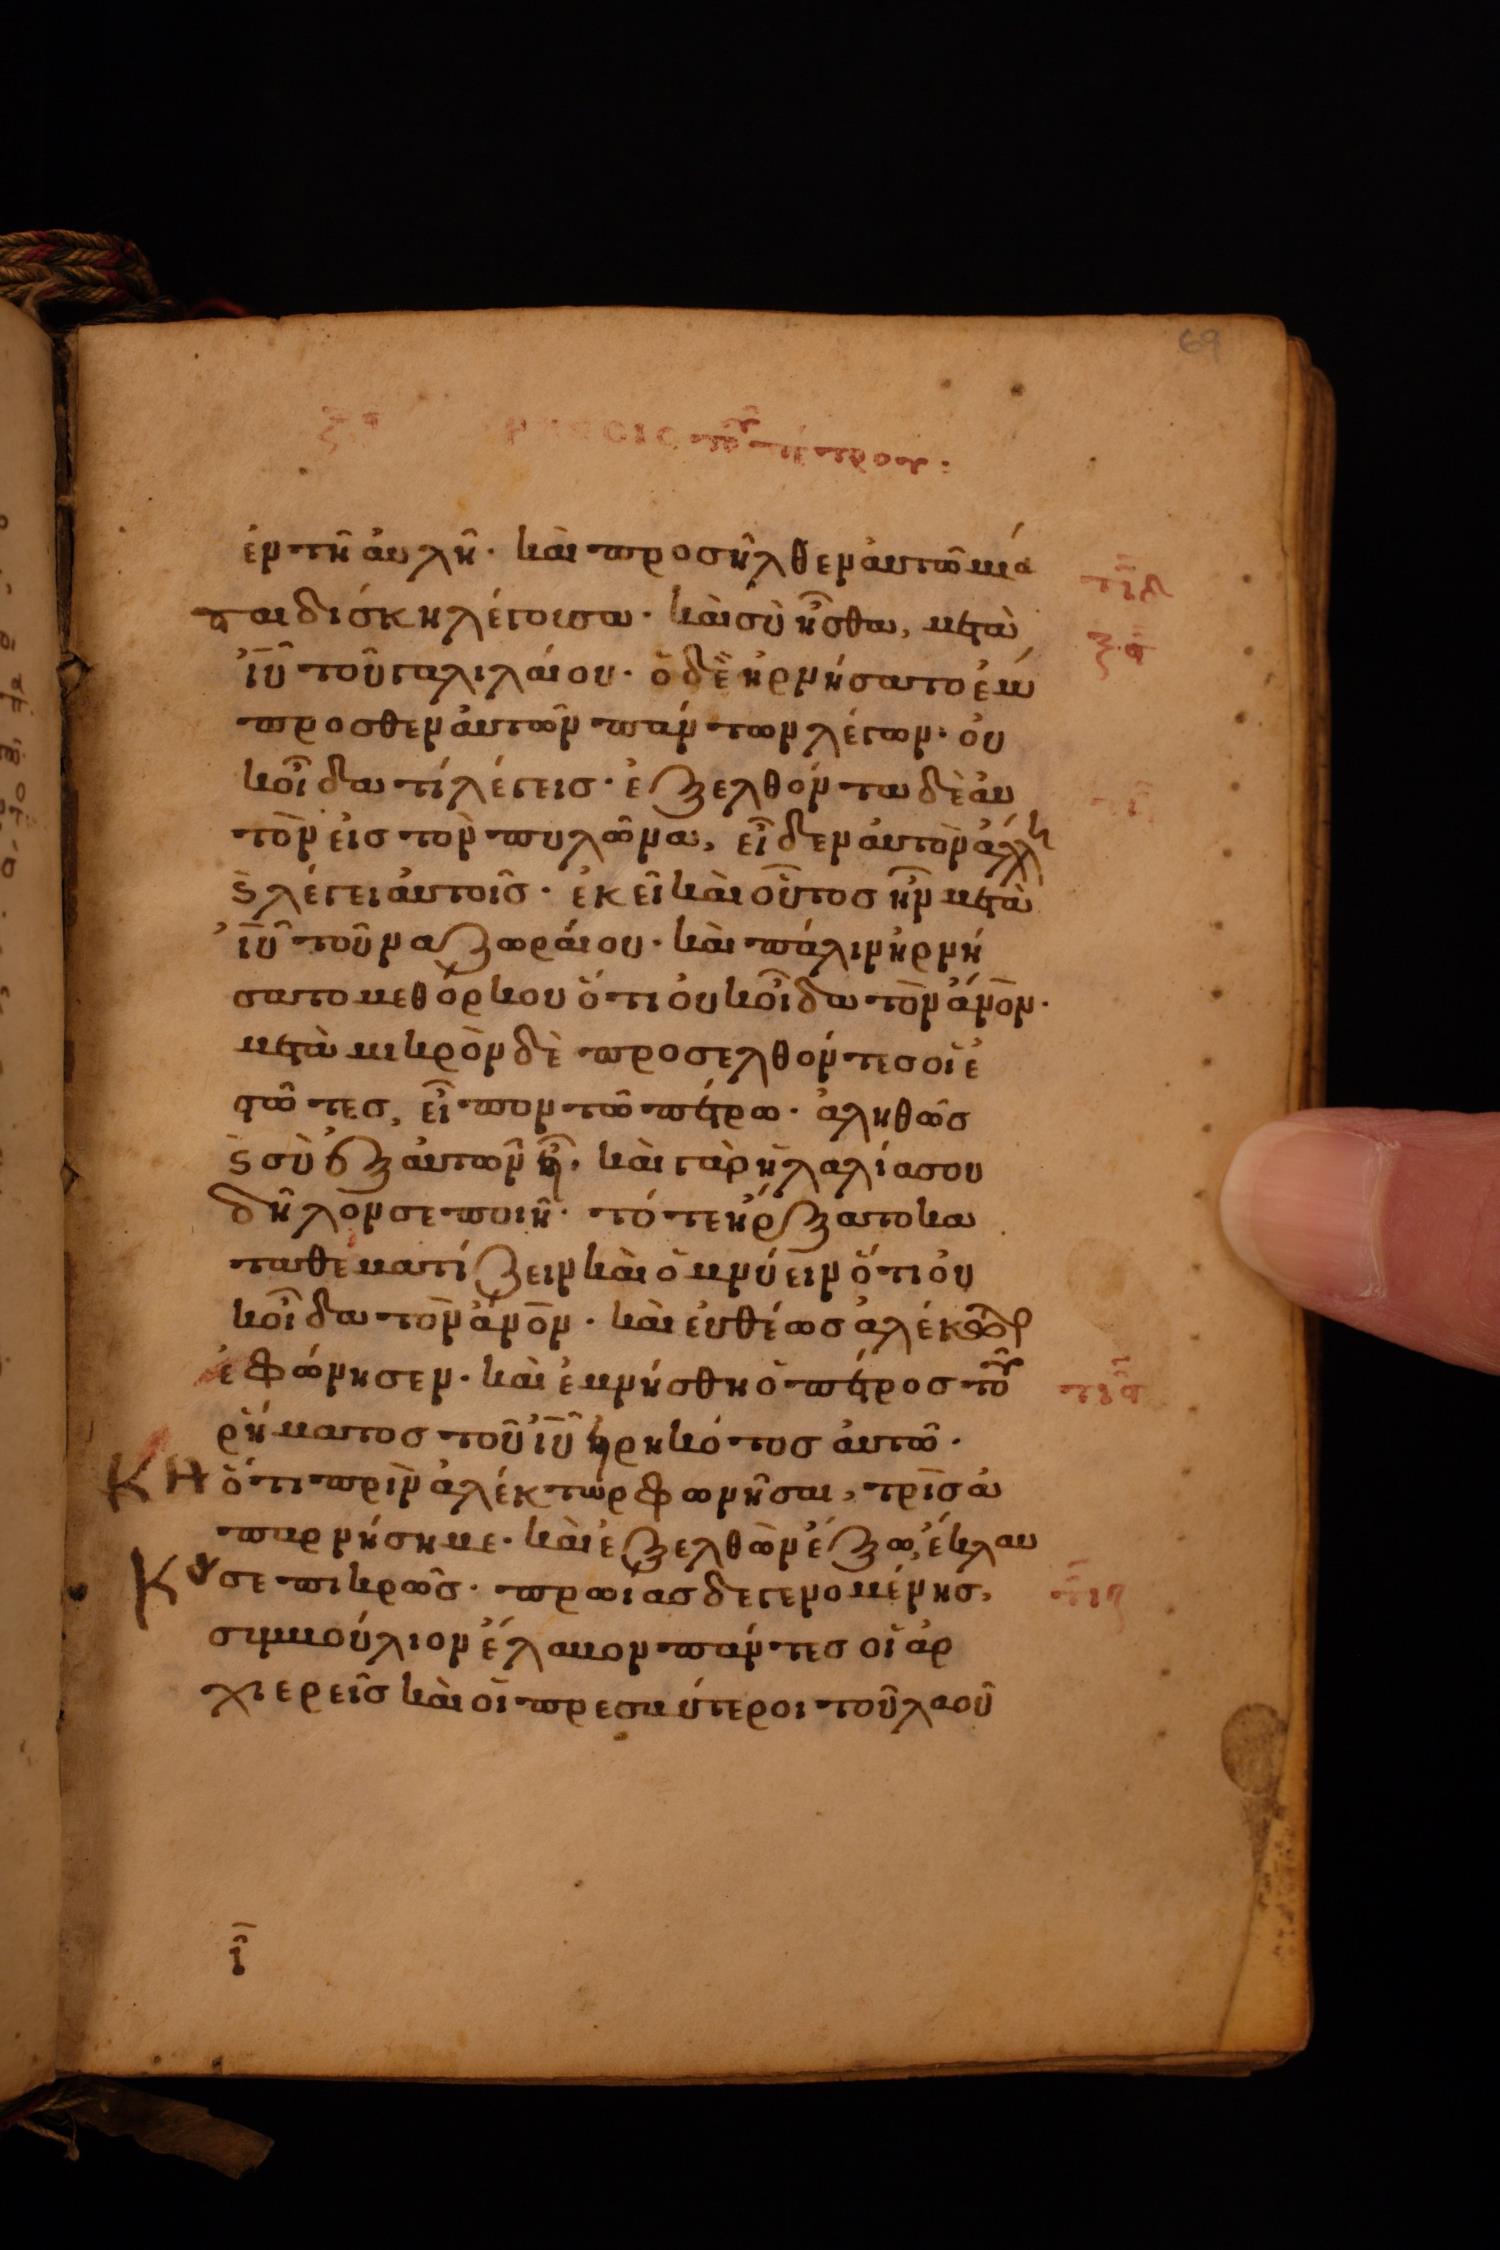 69
ἐν τῆ ἀυλῆ· καὶ προσῆλθεν ἀυτῶ μία
παιδίσκη λέγουσα· καὶ σὺ ἦσθα, μετὰ
ἰ̅υ̅ τοῦ γαλιλαίου· ὁ δὲ ἠρνήσατο ἔμ
προσθεν ἀυτῶν πάντων λέγων· ὀυ
κ οἶδα τί λέγεις· ἐξελθόντα δὲ ἀυ
τὸν εἰς τὸν πυλῶνα, εἶδεν ἀυτὸν ἄλλη
ϛ λέγει ἀυτοῖς· ἐκεῖ καὶ οὗτος ἦν μετὰ
ἰ̅υ̅ τοῦ ναζωραίου· καὶ πάλιν ἠρνή
σατο μεθ όρκου ὅτι ὀυκ οἶδα τὸν ἄ̅ν̅ο̅ν·
μετὰ μικρὸν δὲ προσελθόντες οἱ ἑ
στῶτες, εἶπον τῶ πέτρω· ἀληθῶς
ϛ σὺ ἐξ ἀυτῶν εἶ, καὶ γὰρ ἡ λαλία σου
δῆλον σε ποιῆ· τότε ἤρξατο κα
ταθεματίζειν καὶ ὀμνύειν ὅτι ὀυ
κ οἶδα τὸν ἄ̅ν̅ο̅ν· καὶ ἐυθέως ἀλέκτωρ
ἐφώνησεν· καὶ ἐμνήσθη ὁ πέτρος τοῦ
ῥήματος τοῦ ἰ̅υ̅ εἰρηκότος ἀυτῶ·
ὅτι πρὶν ἀλέκτωρ φωνῆσαι, τρὶς ἀ
παρνήση με· καὶ ἐξελθὼν ἔξω, ἔκλαυ
σε πικρῶς· πρωιας δε γενομένης,
συμβούλιον ἔλαβον πάντες οἱ ἀρ
χιερεῖς καὶ οἱ πρεσβύτεροι τοῦ λαοῦ
ι̅